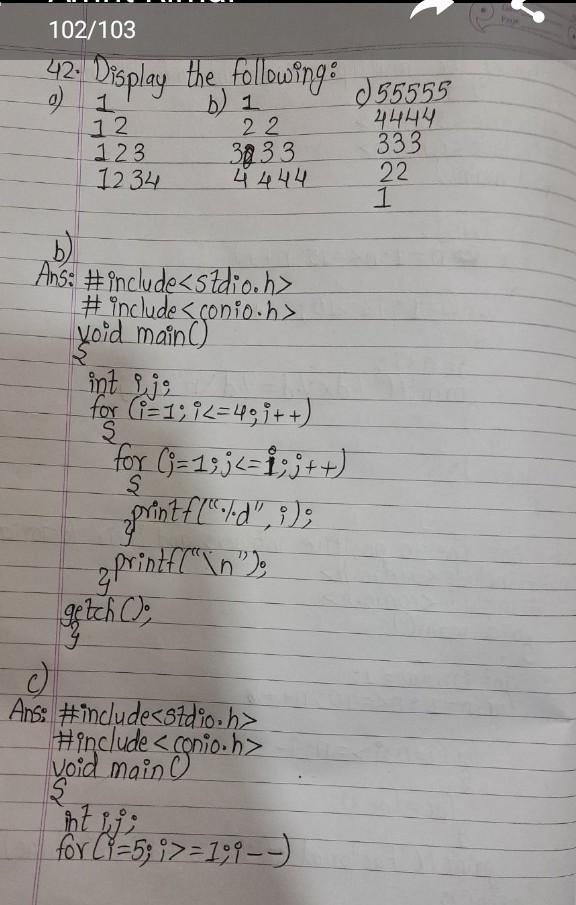 102/103
42. Display the following:
a) 1 b) 1 c) 55555
12 22 4444
123 333 333
1234 4444 22
1
b)
Ans: #include<stdio.h>
# include<conio.h>
void main()
{
int i,j;
for (i=1; i<=4; i++)
{
for (j=1; j<=i; j++)
{
printf("%d", i);
}
printf("\n");
}
getch();
}
c)
Ans: #include<stdio.h>
#include <conio.h>
void main()
{
int i,j;
for (i=5; i>=1; i--)